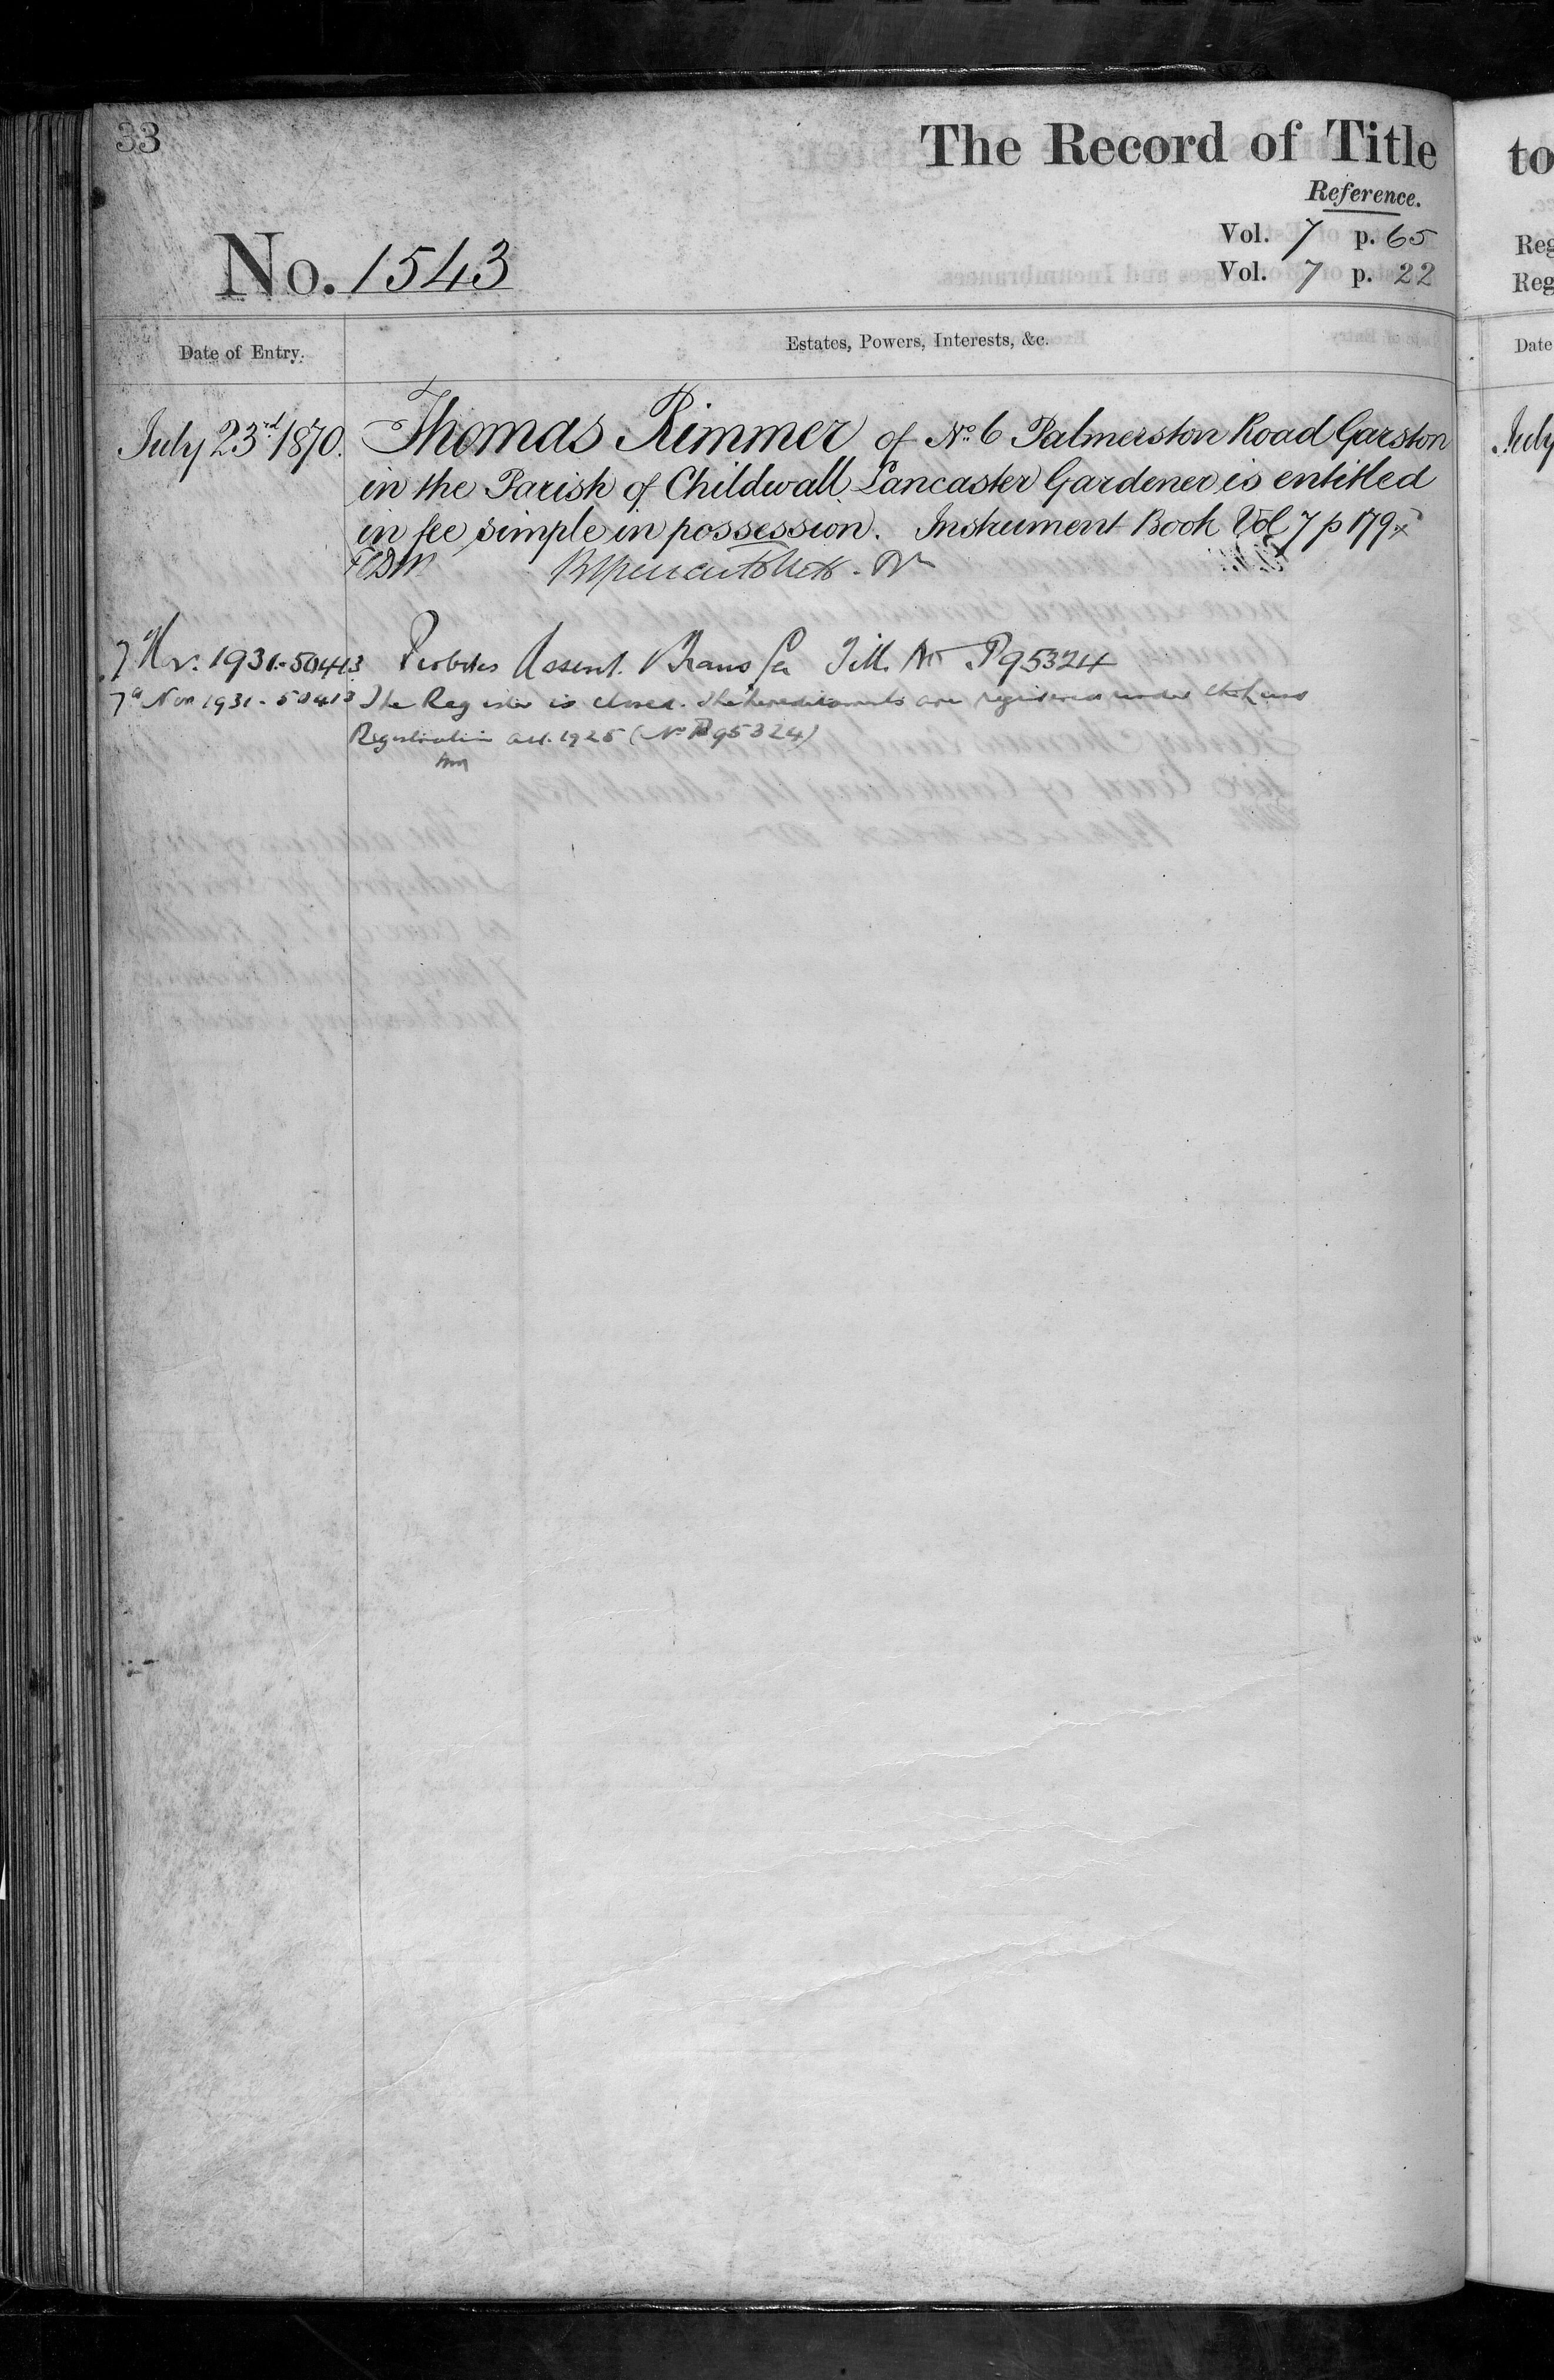 33
The Record of Title
Reference.
Vol. 7 p. 65
Vol. 7 p. 22
No. 1543
Date of Entry.
Estates, Powers, Interests, &c.
July 23rd 1870.
Thomas Rimmer of No. 6 Palmerston Road Garston
in the Parish of Childwall Lancaster Gardener is entitled
in fee simple in possession. Instrument Book Vol 7 p 179
7 Nov. 1931-50413 Probates Assent. Transfer Title No P95324
7th Nov 1931-50413 The Register is closed. The hereditaments are registered under the Land
Registration Act. 1925 (No P95324)
to
Reg
Reg
Date
July